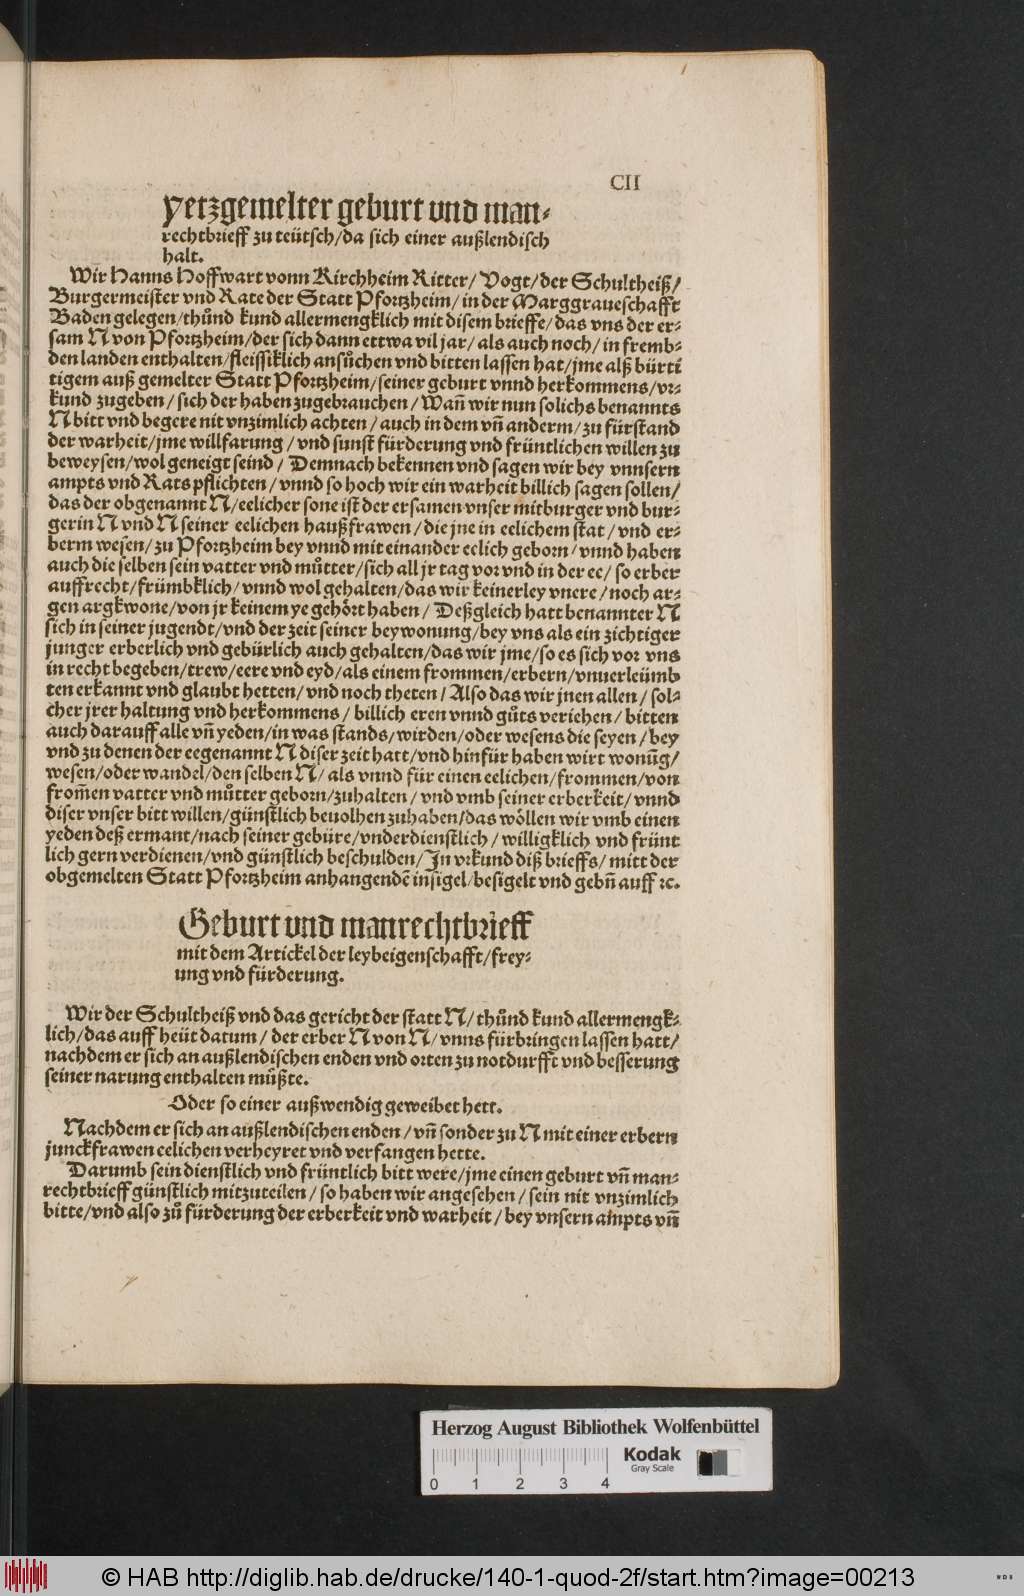 CII
Yetzgemelter geburt und man⸗
rechtbrieff zu teütsch/da sich einer außlendisch
halt.
Wir Hanns Hoffwart vonn Kirchheim Ritter/ Vogt/der Schultheiß/
Burgermeister vnd Rate der Statt Pfortzheim/ in der Marggraueschafft
Baden gelegen/thůnd kund allermengklich mit disem brieffe/das vns der er⸗
sam N von Pfortzheim/der sich dann ettwa vil jar/ als auch noch/ in fremb⸗
den landen enthalten/fleissiklich ansůchen vnd bitten lassen hat/jme alß bürti
tigem auß gemelter Statt Pfortzheim/seiner geburt vnnd herkommens/vr⸗
kund zugeben/sich der haben zugebrauchen/Wañ wir nun solichs benannts
N bitt vnd begere nit vnzimlich achten/auch in dem vñ anderm/zu fürstand
der warheit/jme willfarung/vnd sunst fürderung vnd früntlichen willen zu
beweysen/wol geneigt seind/ Demnach bekennen vnd sagen wir bey vnnsern
ampts vnd Rats pflichten/vnnd so hoch wir ein warheit billich sagen sollen/
das der obgenannt N/eelicher sone ist der ersamen vnser mitburger vnd bur⸗
gerin N vnd N seiner eelichen haußfrawen/die jne in eelichem stat/vnd er⸗
berm wesen/zu Pfortzheim bey vnnd mit einander eelich geborn/vnnd haben
auch die selben sein vatter vnd můtter/sich all jr tag vor vnd in der ee/ so erber
auffrecht/frümbklich/vnnd wol gehalten/das wir keinerley vnere/noch ar⸗
gen argkwone/von jr keinem ye gehört haben/ Deßgleich hatt benannter N
sich in seiner jugendt/vnd der zeit seiner beywonung/bey vns als ein zichtiger
junger erberlich vnd gebürlich auch gehalten/das wir jme/so es sich vor vns
in recht begeben/trew/eere vnd eyd/als einem frommen/erbern/vnuerleümb
ten erkannt vnd glaubt hetten/vnd noch theten/Also das wir jnen allen/sol⸗
cher jrer haltung vnd herkommens/ billich eren vnnd gůts veriehen/bitten
auch darauff alle vñ yeden/in was stands/wirden/oder wesens die seyen/bey
vnd zu denen der eegenannt N diser zeit hatt/vnd hinfür haben wirt wonūg/
wesen/oder wandel/den selben N/ als vnnd für einen eelichen/frommen/von
from̄en vatter vnd můtter geborn/zuhalten/vnd vmb seiner erberkeit/vnnd
diser vnser bitt willen/günstlich beuolhen zuhaben/das wöllen wir vmb einen
yeden deß ermant/nach seiner gebüre/vnderdienstlich/willigklich vnd frünt
lich gern verdienen/vnd günstlich beschulden/In vrkund diß brieffs/mitt der
obgemelten Statt Pfortzheim anhangendē insigel/besigelt vnd gebñ auff ꝛc.
Geburt und manrechtbrieff
mit dem Artickel der leybeigenschafft/frey⸗
ung vnd fürderung.
Wir der Schultheiß vnd das gericht der statt N/thůnd kund allermengk⸗
lich/das auff heüt datum/ der erber N von N/vnns fürbringen lassen hatt/
nachdem er sich an außlendischen enden vnd orten zu notdurfft vnd besserung
seiner narung enthalten můßte.
Oder so einer außwendig geweibet hett.
Nachdem er sich an außlendischen enden/vñ sonder zu N mit einer erbern
junckfrawen eelichen verheyret vnd verfangen hette.
Darumb sein dienstlich vnd früntlich bitt were/jme einen geburt vñ man⸗
rechtbrieff günstlich mitzuteilen/so haben wir angesehen/sein nit vnzimlich
bitte/vnd also zů fürderung der erberkeit vnd warheit/bey vnsern ampts vñ
Herzog August Bibliothek Wolfenbüttel
Kodak
Gray Scale
0 1 2 3 4
© HAB http://diglib.hab.de/drucke/140-1-quod-2f/start.htm?image=00213